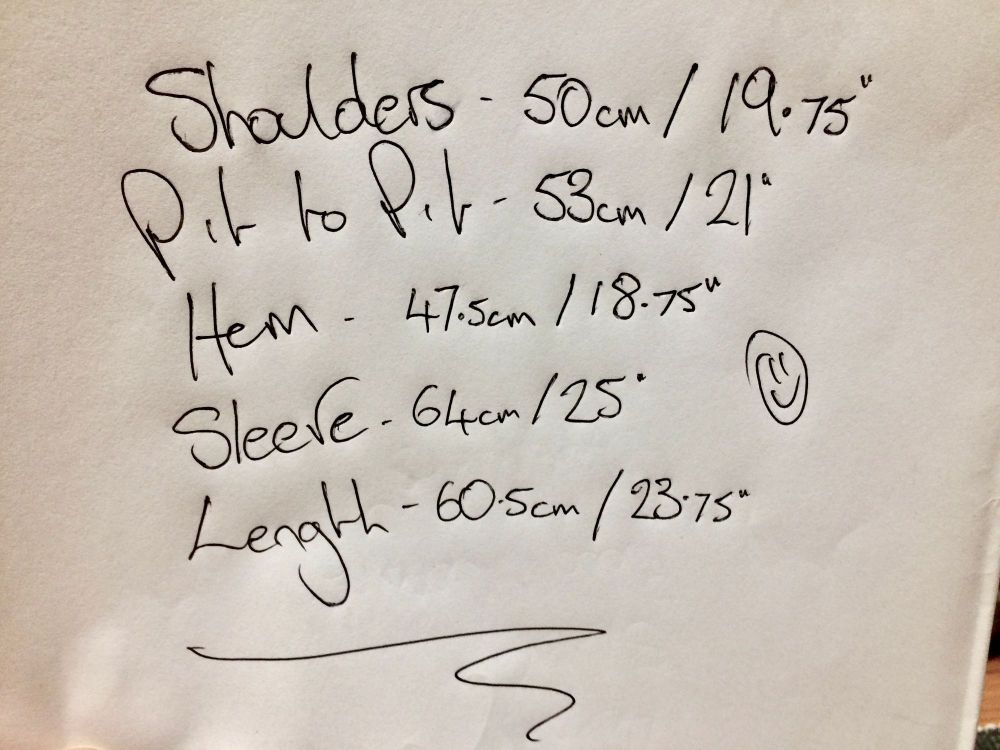 Shoulders - 50cm / 19.75"
Pit to Pit - 53cm / 21"
Hem - 47.5cm / 18.75"
Sleeve - 64cm / 25"
Length - 60.5cm / 23.75"